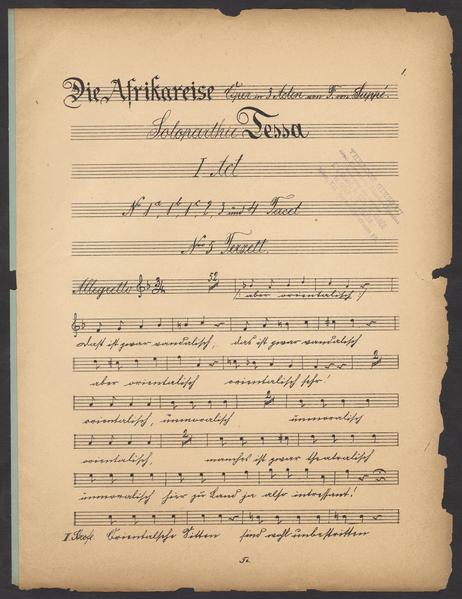 1.
Die Afrikareise Oper in 3 Acten von F. von Suppé.
Soloparthie Tessa
I Act
No 1a, 1b, 1c, 2, 3 und 4 Tacet
Nro 5 Terzett.
Allegretto 52
(: aber orientalisch :)
das ist zwar vandalisch, das ist zwar vandalisch
aber orientalisch orientalisch sehr!
orientalisch, unmoralisch unmoralisch
orientalisch, manches ist zwar theatralisch
unmoralisch hier zu Land ja also intressant!
II Strofe Orientalsche Sitten sind recht unbestritten